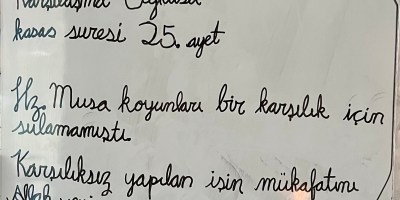 kasas suresi 25. ayet
Hz. Musa koyunları bir karşılık için
sulamamıştı
Karşılıksız yapılan işin mükafatını
Allah